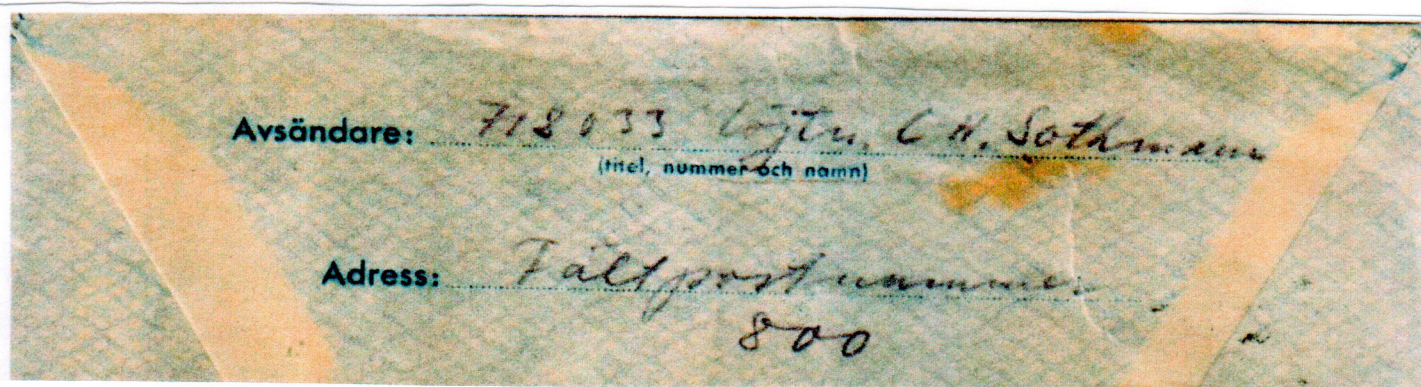 Avsändare: 718033 Löjtn. C H. Sothmann
(titel, nummer och namn)
Adress: Fältpostnummer
800